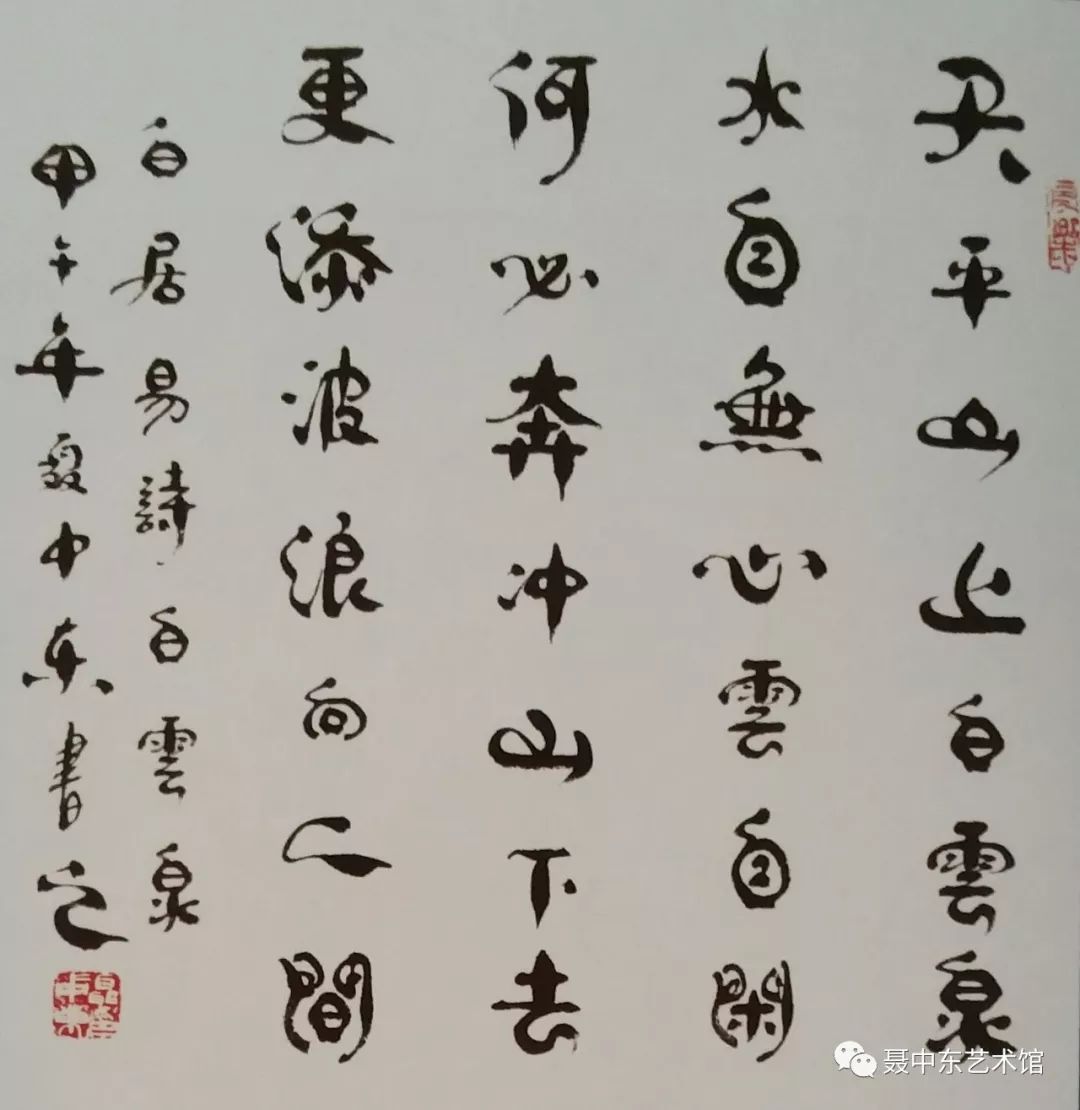 天平山上白雲泉
水自無心雲自閑
何必奔冲山下去
更添波浪向人間
白居易詩白雲泉
甲午年夏中东書之
聂中东艺术馆